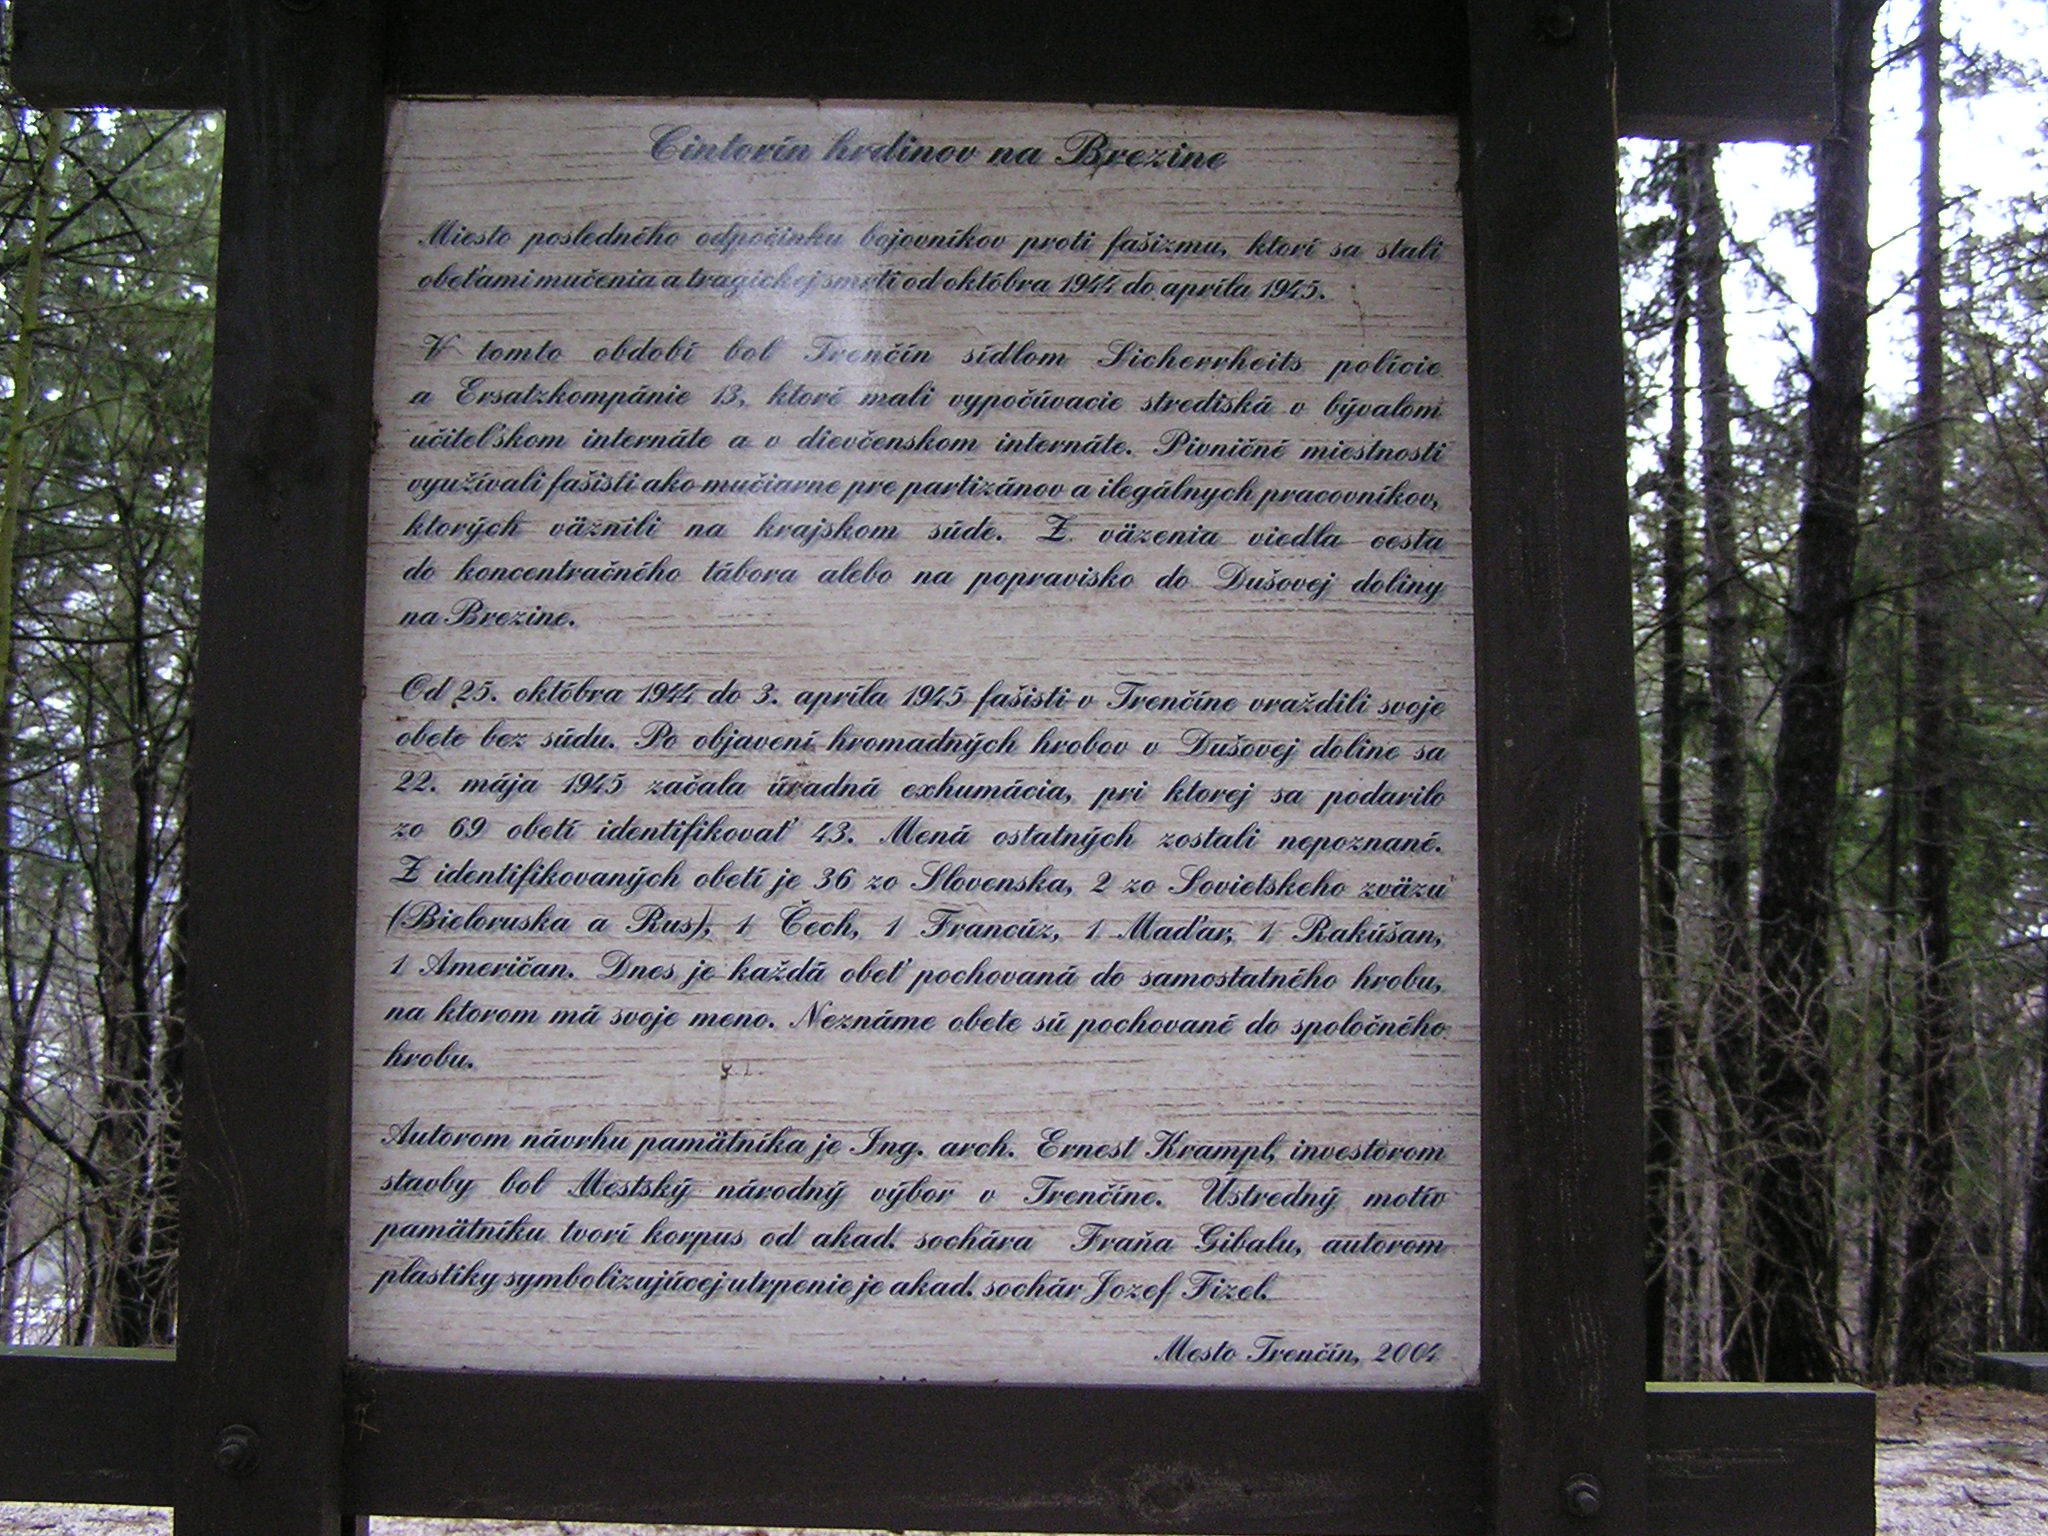 Cintorín hrdinov na Brezine
Miesto posledného odpočinku bojovníkov proti fašizmu, ktorí sa stali
obeťami mučenia a tragickej smrti od októbra 1944 do apríla 1945.
V tomto období bol Trenčín sídlom Sicherrheits polície
a Ersatzkompánie 13, ktoré mali vypočúvacie strediská v bývalom
učiteľskom internáte a v dievčenskom internáte. Pivničné miestnosti
využívali fašisti ako mučiarne pre partizánov a ilegálnych pracovníkov,
ktorých väznili na krajskom súde. Z väzenia viedla cesta
do koncentračného tábora alebo na popravisko do Dušovej doliny
na Brezine.
Od 25. októbra 1944 do 3. apríla 1945 fašisti v Trenčíne vraždili svoje
obete bez súdu. Po objavení hromadných hrobov v Dušovej doline sa
22. mája 1945 začala úradná exhumácia, pri ktorej sa podarilo
zo 69 obetí identifikovať 43. Mená ostatných zostali nepoznané.
Z identifikovaných obetí je 36 zo Slovenska, 2 zo Sovietskeho zväzu
(Bieloruska a Rus), 1 Čech, 1 Francúz, 1 Maďar, 1 Rakúšan,
1 Američan. Dnes je každá obeť pochovaná do samostatného hrobu,
na ktorom má svoje meno. Neznáme obete sú pochované do spoločného
hrobu.
Autorom návrhu pamätníka je Ing. arch. Ernest Krampl, investorom
stavby bol Mestský národný výbor v Trenčíne. Ústredný motív
pamätníku tvorí korpus od akad. sochára Fraňa Gibalu, autorom
plastiky symbolizujúcej utrpenie je akad. sochár Jozef Fizel.
Mesto Trenčín, 2004